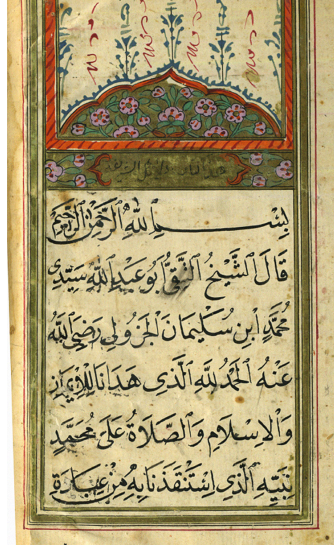 بِسْمِ اللهِ الرَّحْمٰنِ الرَّحِيْمِ
قَالَ الشَّيْخُ التَّقِيُّ اَبُو عَبْدِ اللهِ سَيِّدِي
مُحَمَّدُ ابْنُ سُلَيْمَانَ الْجَزُولِي رَضِيَ اللهُ
عَنْهُ الْحَمْدُ لِلهِ الَّذِي هَدَانَا لِلْاِيمَانِ
وَالْاِسْلَامِ وَالصَّلَاةُ عَلَى مُحَمَّدٍ
نَبِيِّهِ الَّذِي اسْتَنْقَذَنَا بِهِ مِنْ عِبَادَةِ